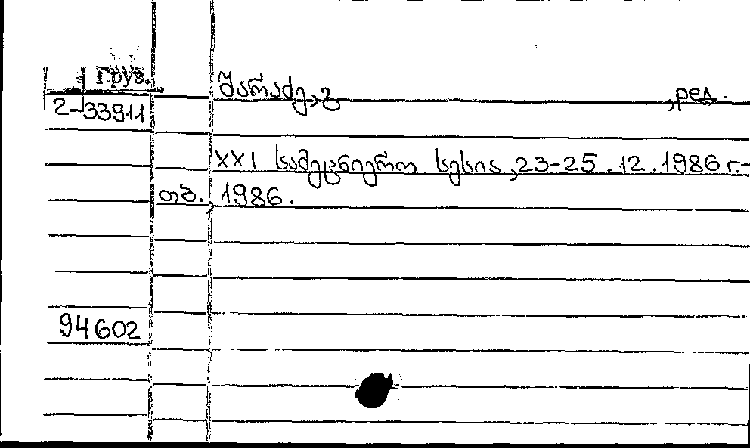 Груз.
შარაძე, გ , ред.
2-33911
XXI სამეცნიერო სესია, 23-25.12.1986 г.-
თბ., 1986.
94602